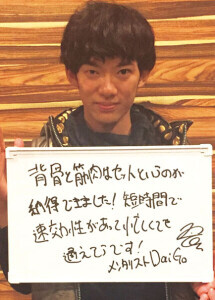 背骨と筋肉はセットというのが
納得できました！短時間で
速効性があって忙しくても
通えそうです！
メンタリスト DaiGo